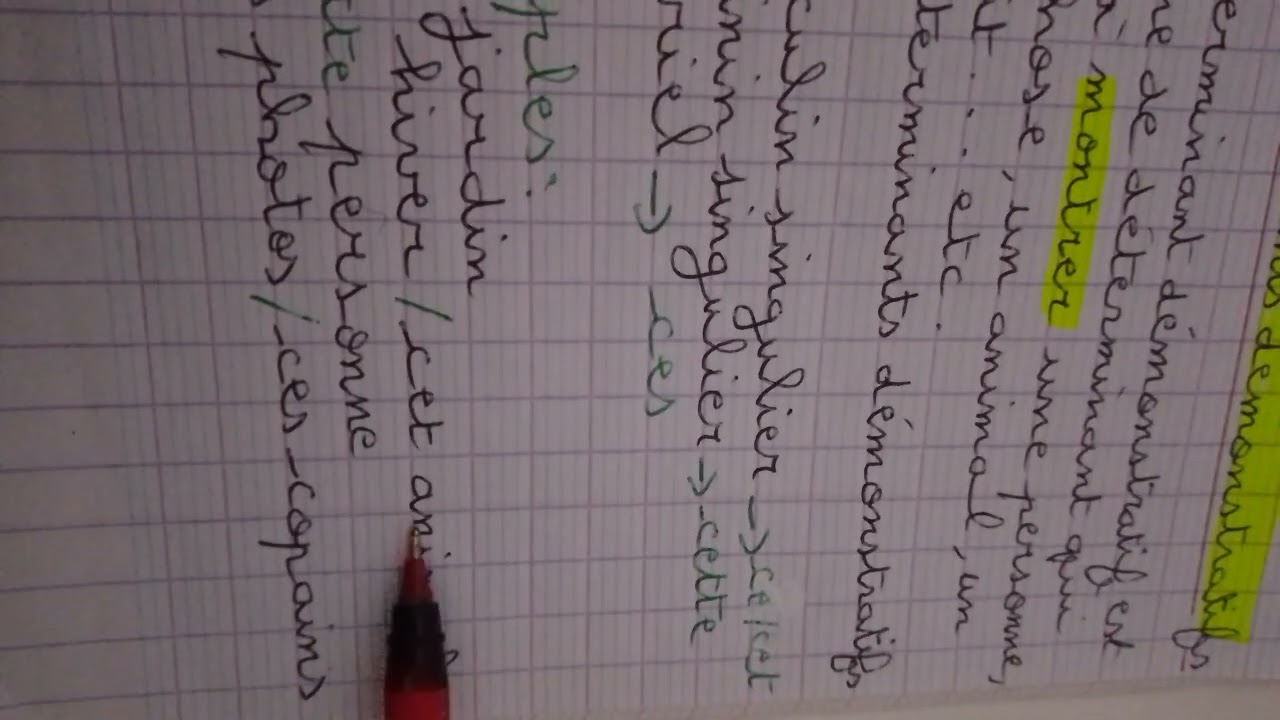 démonstratifs
déterminant démonstratif est
de déterminant qui
à montrer une personne,
chose, un animal, un
etc.
déterminants démonstratifs
masculin singulier → ce/cet
singulier → cette
→ ces
exemples:
jardin
hiver / cet
cette personne
photos / ces copains